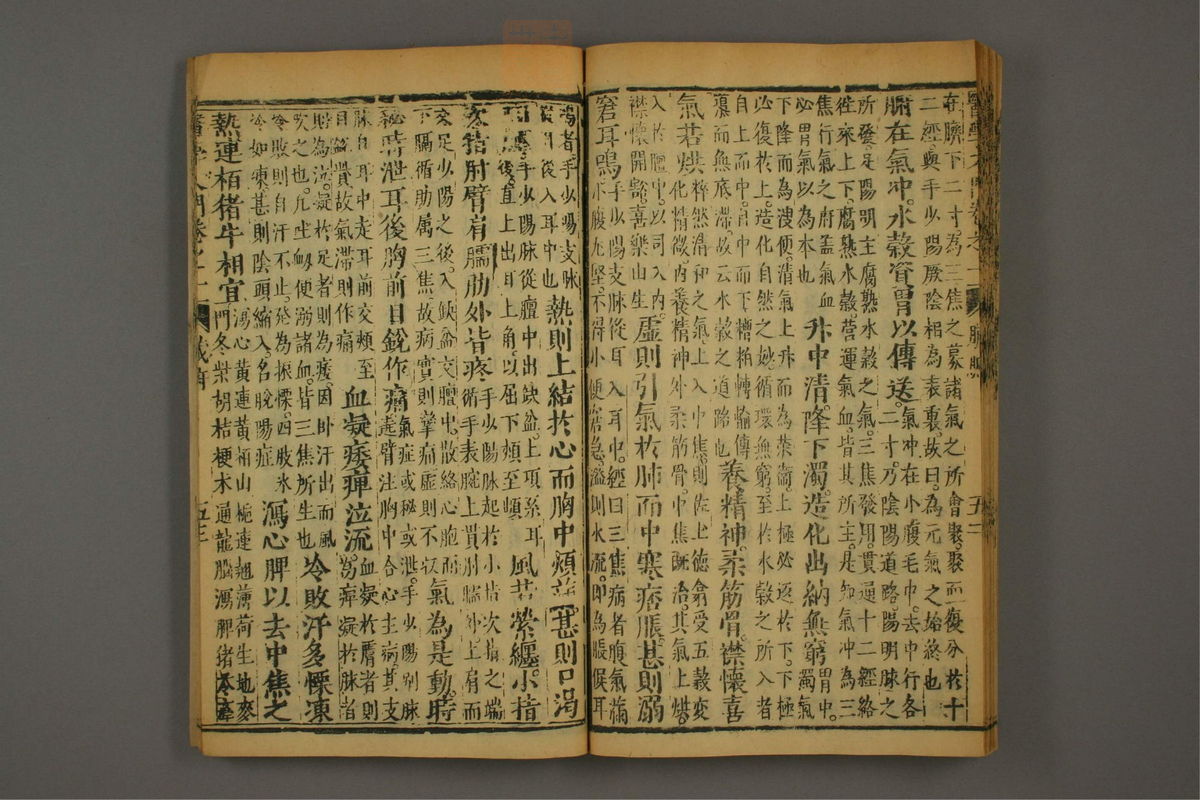 醫學入門卷之一 臟腑 五二
在臍下二寸為三焦之募諸氣之所會聚聚而復分於十
二經與手少陽厥陰相為表裏故曰為元氣之始終也
腑在氣冲水穀資胃以傳送。氣冲在小腹毛中去中行各
二寸乃陰陽道路陽明脉之
所發足陽明主腐熟水穀之氣三焦發用貫通十二經絡
往來上下腐熟水穀營運氣血皆其所主是知氣冲為三
焦行氣之府蓋氣血
胃氣以為本也
升中清降下濁造化出納無窮胃中
濁氣
下降而為溲便清氣上升而為榮衛上極必返於下下極
必復於上造化自然之妙循環無窮至於水穀之所入者
自上而中自中而下糟粕轉輸傳
蕩而無底滯故云水穀之道路也
養精神柔筋骨襟懷喜
氣若烘粹然清和之氣上入中焦則佐上德翕受五穀變
化精微內養精神外柔筋骨中焦既治其氣上烘
入於膻中以司入內
襟懷開豁喜樂由生
虛則引氣於肺而中寒痞脹甚則溺
窘耳鳴手少陽支脉從耳入耳中經曰三焦病者腹氣滿
小腹尤堅不得小便窘急溢則水流即為脹候耳
鳴者手少陽支脉
從耳後入耳中也
熱則上結於心而胸中煩滿甚則口渴
咽腫手少陽脉從膻中出缺盆上項系耳
後直上出耳上角以屈下頰至䪼
風若縈纏小指
次指肘臂肩臑肋外皆疼手少陽脉起於小指次指之端
循手表腕上貫肘臑外上肩而
交足少陽之後入缺盆交膻中散絡心胞而
下膈循肋属三焦故病實則攣痛虛則不收
氣為是動時
秘時泄耳後胸前目銳作痛氣症或秘或泄手少陽別脉
遶臂注胸中合心主病其支
脉自耳中走耳前交頰至
目銳眥故氣滯則作痛
血凝痿痺泣流血凝於膚者則
為痺凝於脉者
則為泣凝於足者則為痿因卧汗出而風
吹之也凡坐衄便溺諸血皆三焦所生也
冷敗汗多慄凍
冷敗則自汗不止發為振慄四肢氷
冷如凍甚則陰頭縮入名脫陽症
瀉心脾以去中焦之
熱連栢猪牛相宜瀉心黃連黃栢山梔連翹薄荷生地麥
門冬柴胡桔梗木通龍腦瀉脾猪
醫學入門卷之一 臟腑 五三